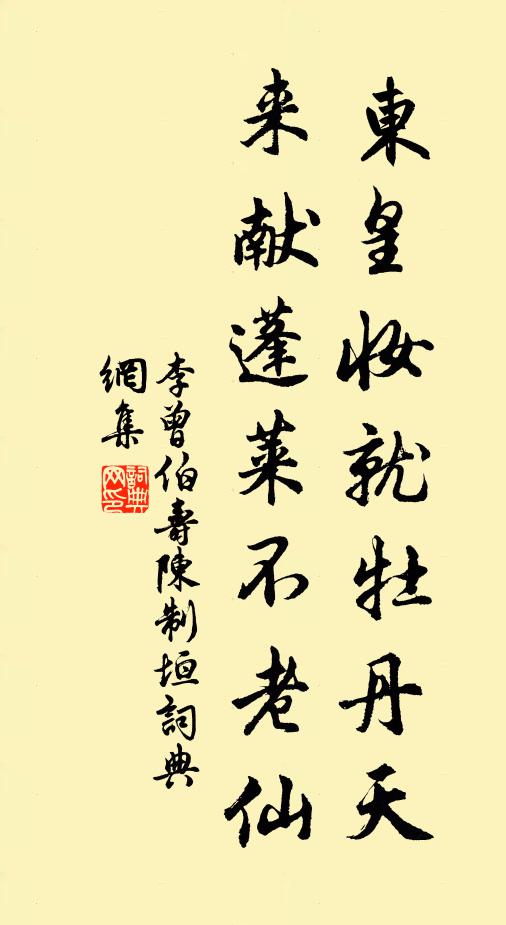 東皇妝就牡丹天
来献蓬莱不老仙
李曾伯壽陳制垣詞典
網集
詞典網印